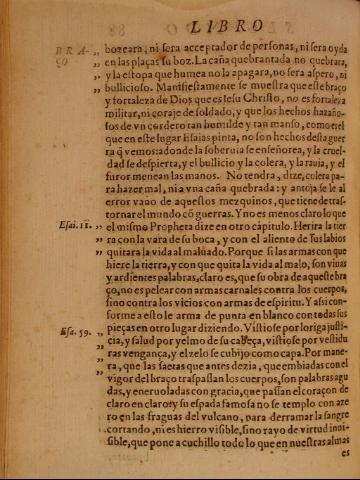 LIBRO
BRA-
ÇO
„ bozeara, ni sera acceptador de personas, ni sera oyda
„ en las plaças su boz. La caña quebrantada no quebrara,
„ y la estopa que humea no la apagara, no sera aspero, ni
„ bullicioso. Manifiestamente se muestra que este braço
y fortaleza de Dios que es Iesu Christo, no es fortaleza
militar, ni coraje de soldado, y que los hechos hazaño-
sos de vn cordero tan humilde y tan manso, como es el
que en este lugar Isaias pinta, no son hechos desta guer
ra q̃ vemos: adonde la soberuia se enseñorea, y la cruel-
dad se despierta, y el bullicio y la colera, y la rauia, y el
furor menean las manos. No tendra, dize, colera pa-
ra hazer mal, ni a vna caña quebrada: y antoja se le al
error vano de aquestos mezquinos, que tiene de tras-
tornar el mundo cõ guerras. Y no es menos claro lo que
Esai. 11. „ el mismo Propheta dize en otro capitulo. Herira la tier
„ ra con la vara de su boca, y con el aliento de sus labios
„ quitara la vida al maluado. Porque si las armas con que
hiere la tierra, y con que quita la vida al malo, son viuas
y ardientes palabras, claro es, que su obra de aqueste bra
ço, no es pelear con armas carnales contra los cuerpos,
sino contra los vicios con armas de espiritu. Y assi con-
forme a esto le arma de punta en blanco con todas sus
Esa. 59. „ pieças en otro lugar diziendo. Vistiose por loriga justi-
„ cia, y salud por yelmo de su cabeça, vistiose por vestidu
„ ras vengança, y el zelo se cubijo como capa. Por mane-
ra, que las saetas que antes dezia, que embiadas con el
vigor del braço traspassan los cuerpos, son palabras agu
das, y enerboladas con gracia, que passan el coraçon de
claro en claro: y su espada famosa no se templo con aze
ro en las fraguas del vulcano, para derramar la sangre
cortando, ni es hierro visible, sino rayo de virtud inui-
sible, que pone a cuchillo todo lo que en nuestras almas
es